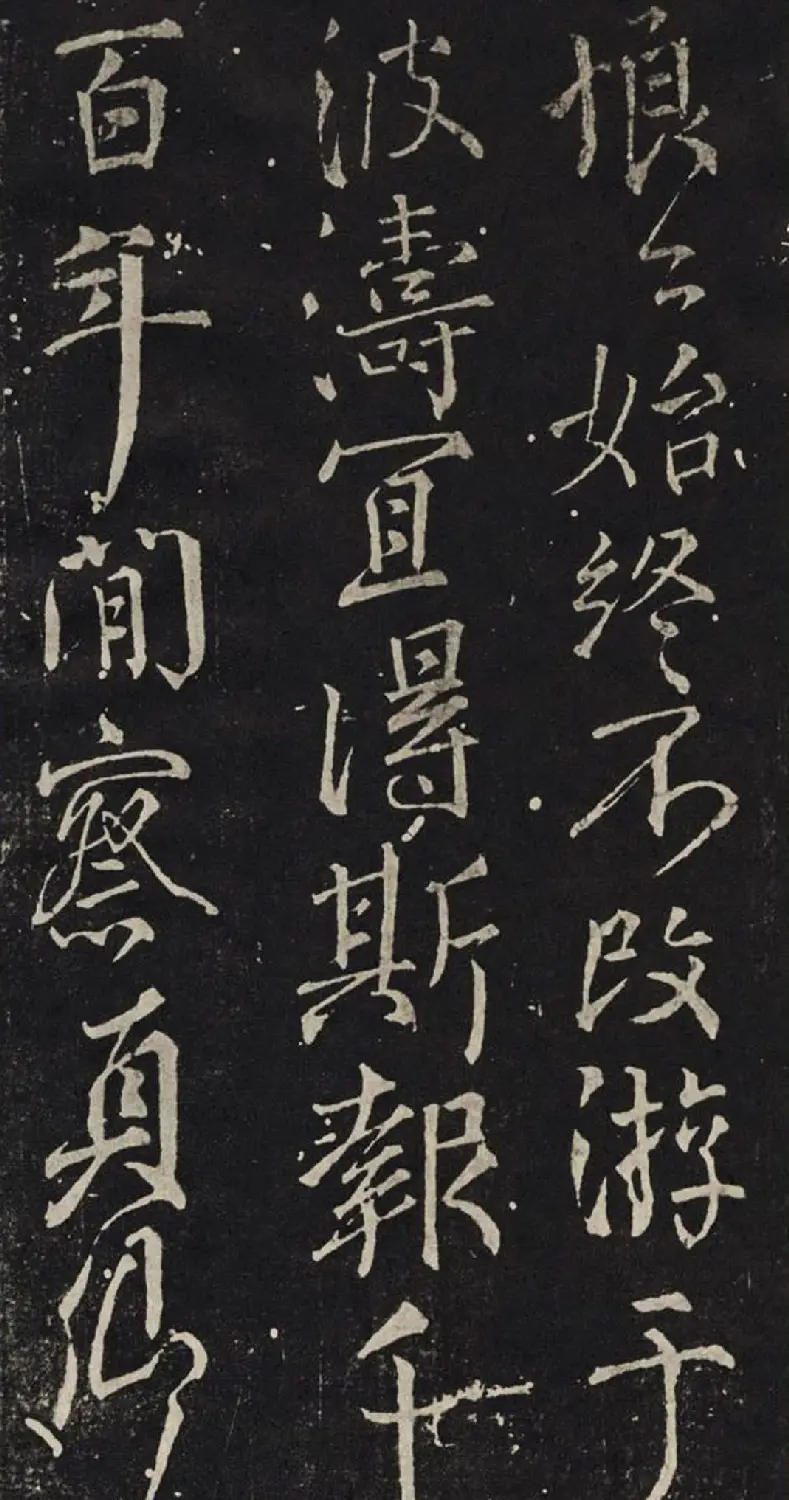 悢々始終不改游于
波濤宜得斯報千
百年間察真卿